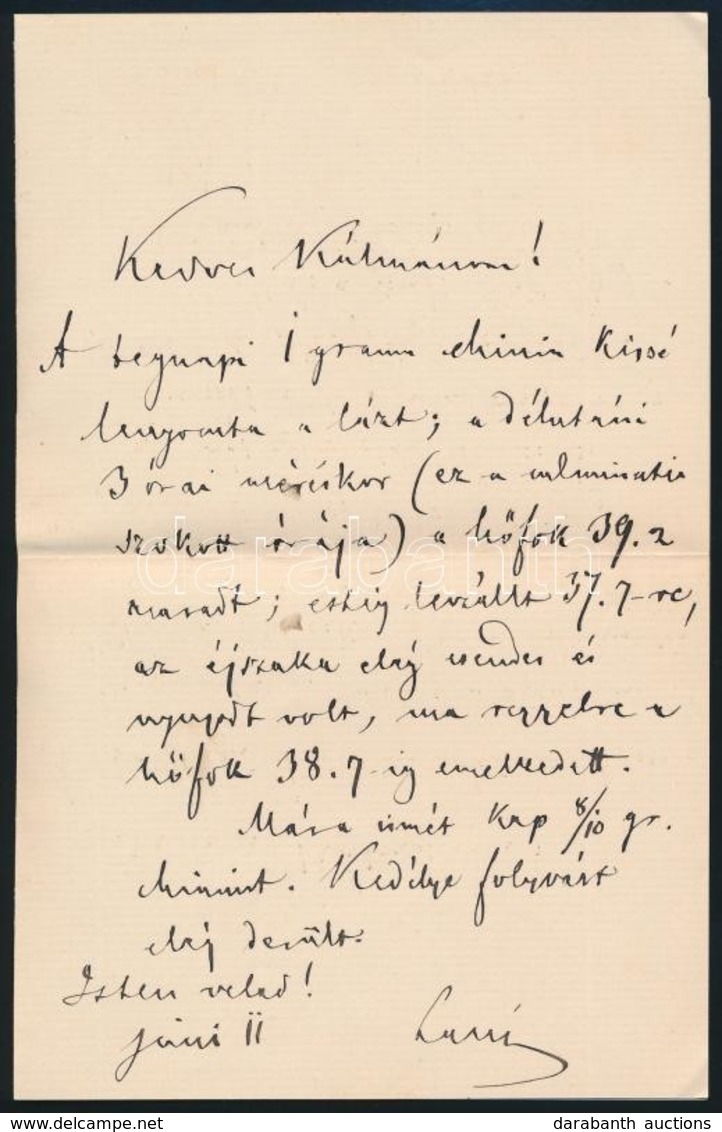 Kedves Kálmánom!
A tegnapi 1 gramm chinin kissé
lenyomta a lázt; a délutáni
3 órai méréskor (ez a culminatio
szokott órája) a hőfok 39.2
maradt; estig leszállt 37.7-re,
az éjszaka elég csendes és
nyugodt volt, ma reggelre a
hőfok 38.7-ig emelkedett.
Mára ismét kap 8/10 gr.
chinint. Kedélye folyvást
elég derült.
Isten veled!
júni 11
darabanth
www.delcampe.net
darabanth auctions